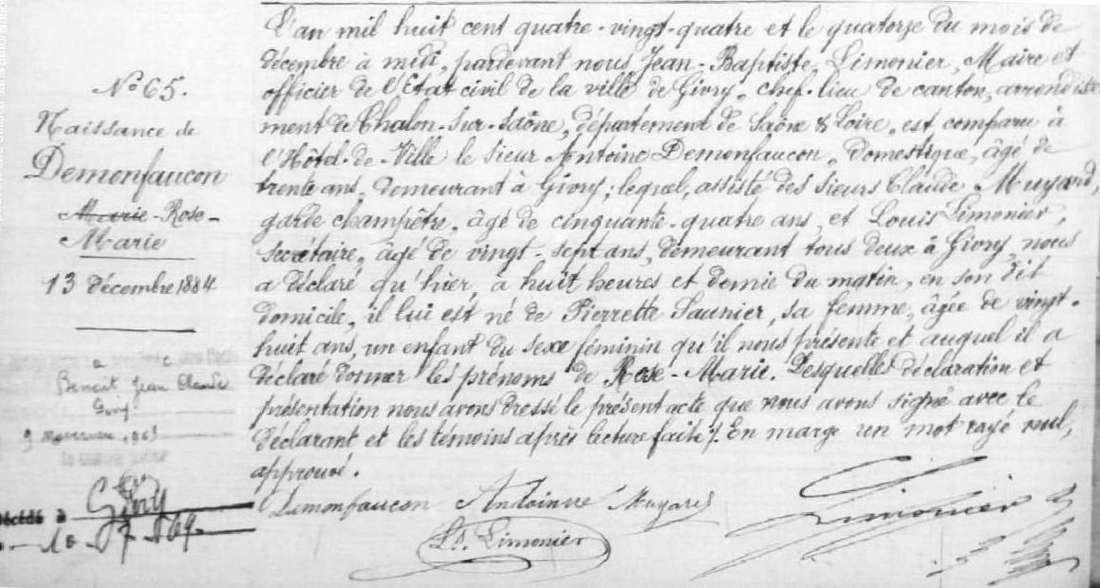 N° 65.
Naissance de
Demonfaucon
Marie-Rose-
Marie
13 Décembre 1884
a
Benoit Jean Claude
Givry
9
Décédé à Givry
L'an mil huit cent quatre-vingt-quatre et le quatorze du mois de
décembre à midi, pardevant nous Jean-Baptiste, Limonier, Maire et
officier de l'Etat civil de la ville de Givry, chef-lieu de canton, arrondisse
ment de Chalon-sur-Saône, département de Saône & Loire, est comparu à
l'Hôtel-de-Ville le sieur Antoine Demonfaucon, domestique, âgé de
trente ans, demeurant à Givry; lequel, assisté des sieurs Claude Muyard,
garde champêtre, âgé de cinquante-quatre ans, et Louis Limonier,
secrétaire, âgé de vingt-sept ans, demeurant tous deux à Givry, nous
a déclaré qu'hier, à huit heures et demie du matin, en son dit
domicile, il lui est né de Pierrette Saunier, sa femme, âgée de vingt-
huit ans, un enfant du sexe féminin qu'il nous présente et auquel il a
déclaré donner les prénoms de Rose-Marie. Desquelles déclaration et
présentation nous avons dressé le présent acte que nous avons signé avec le
déclarant et les témoins après lecture faite. En marge un mot rayé nul,
approuvé.
Demonfaucon Antoinne Muyard
Ls. Limonier
Limonier